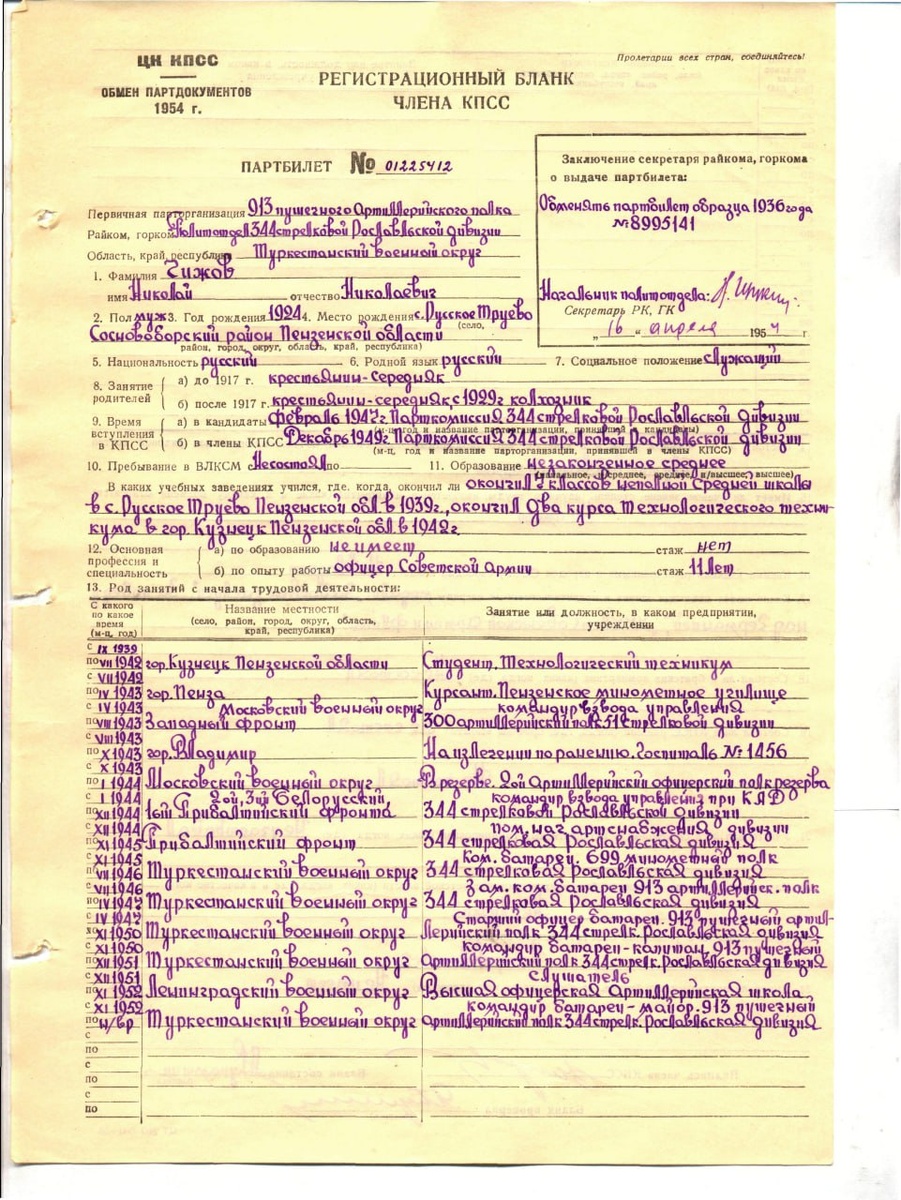 ЦК КПСС
ОБМЕН ПАРТДОКУМЕНТОВ
1954 г.
Пролетарии всех стран, соединяйтесь!
РЕГИСТРАЦИОННЫЙ БЛАНК
ЧЛЕНА КПСС
ПАРТБИЛЕТ № 01225412
Заключение секретаря райкома, горкома
о выдаче партбилета:
Обменять партбилет образца 1936 года
№ 8995141
Начальник политотдела:
Секретарь РК, ГК
„16" апреля 1954 г
Первичная парторганизация 913 пушечного Артиллерийского полка
Райком, горком Политотдел 344 стрелковой Рославльской дивизии
Область, край, республика Туркестанский военный округ
1. Фамилия Чижов
имя Николай отчество Николаевич
2. Пол муж 3. Год рождения 1924 4. Место рождения с. Русское Труево
(село,
Сосновоборский район Пензенской области
район, город, округ, область, край, республика)
5. Национальность русский 6. Родной язык русский 7. Социальное положение служащий
8. Занятие родителей
а) до 1917 г. крестьянин-середняк
б) после 1917 г. крестьянин-середняк, с 1929г колхозник
9. Время вступления в КПСС
а) в кандидаты февраль 1947г. Парткомиссия 344 стрелковой Рославльской дивизии
(м-ц, год и название парторганизации, принявшей в кандидаты)
б) в члены КПСС Декабрь 1949г. Парткомиссия 344 стрелковой Рославльской дивизии
(м-ц, год и название парторганизации, принявшей в члены КПСС)
10. Пребывание в ВЛКСМ с Не состоял по 11. Образование незаконченное среднее
(начальное, н/среднее, среднее, н/высшее, высшее)
В каких учебных заведениях учился, где, когда, окончил ли окончил 7 классов неполной средней школы
в с. Русское Труево Пензенской обл. в 1939г., окончил два курса Технологического техни-
кума в гор. Кузнецк Пензенской обл. в 1942г.
12. Основная профессия и специальность
а) по образованию не имеет стаж нет
б) по опыту работы офицер Советской Армии стаж 11 лет
13. Род занятий с начала трудовой деятельности:
С какого по какое время (м-ц, год)
Название местности (село, район, город, округ, область, край, республика)
Занятие или должность, в каком предприятии, учреждении
с IX 1939
по VII 1942 гор. Кузнецк Пензенской области Студент. Технологический техникум
с VII 1942
по IV 1943 гор. Пенза Курсант. Пензенское минометное училище
с IV 1943 Московский военный округ командир взвода управления
по VIII 1943 Западный фронт 300 артиллерийский полк 51 стрелковой дивизии
с VIII 1943
по X 1943 гор. Владимир На излечении по ранению. Госпиталь № 1456
с X 1943
по I 1944 Московский военный округ В резерве. 2ой Артиллерийский офицерский полк резерва
с I 1944 2ой, 3ий Белорусский, командир взвода управления при КАД
по XII 1944 1ый Прибалтийский фронта 344 стрелковой Рославльской дивизии
с XII 1944 пом. нач. артснабжения дивизии
по XI 1945 Прибалтийский фронт 344 стрелковая Рославльская дивизия
с XI 1945 ком. батареи. 699 минометный полк
по VII 1946 Туркестанский военный округ 344 стрелковая Рославльская дивизия
с VII 1946 Зам. ком. батареи 913 артиллерийск. полк
по IV 1947 Туркестанский военный округ 344 стрелковая Рославльская дивизия
с IV 1947 Старший офицер батареи. 913 пушечный артил-
по XI 1950 Туркестанский военный округ лерийский полк 344 стрелк. Рославльская дивизия
с XI 1950 командир батареи-капитан. 913 пушечный
по XII 1951 Туркестанский военный округ Артиллерийский полк 344 стрелк. Рославльская дивизия
с XII 1951 слушатель
по XI 1952 Ленинградский военный округ Высшая офицерская Артиллерийская школа
с XI 1952 командир батареи-майор. 913 пушечный
по н/вр Туркестанский военный округ Артиллерийский полк 344 стрелк. Рославльская дивизия
с
по
с
по
с
по